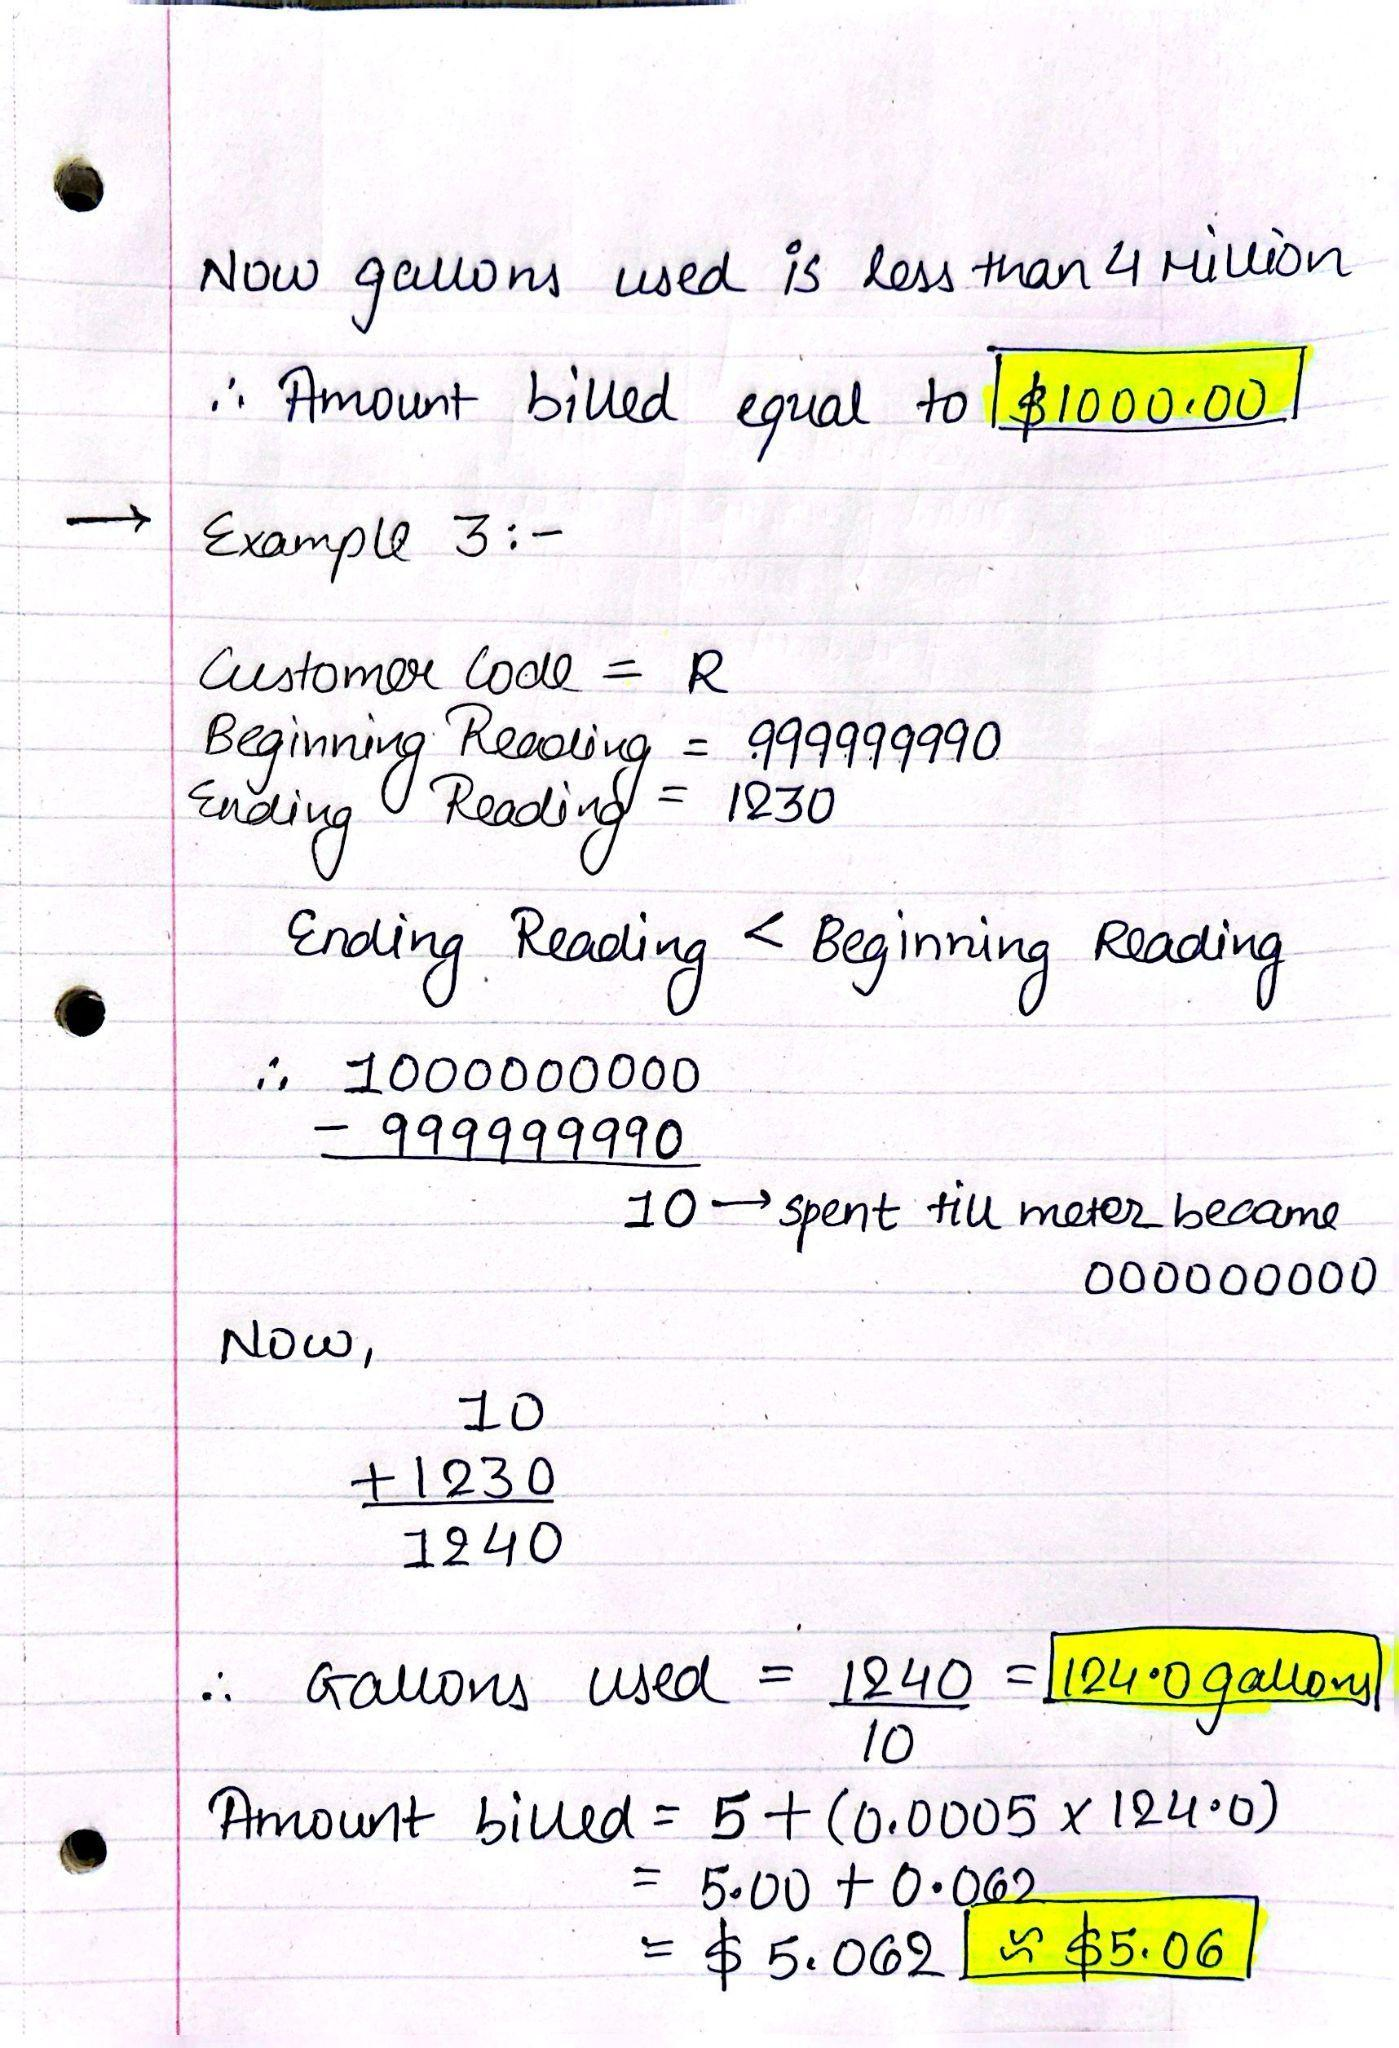 Now gallons used is less than 4 Million
∴ Amount billed equal to $1000.00
→ Example 3:-
Customer Code = R
Beginning Reading = 999999990
Ending Reading = 1230
Ending Reading < Beginning Reading
∴ 1000000000
- 999999990
10 → spent till meter became
000000000
Now,
10
+1230
1240
∴ Gallons used = 1240 = 124.0 gallons
10
Amount billed = 5 + (0.0005 x 124.0)
= 5.00 + 0.062
= $ 5.062 ≈ $5.06